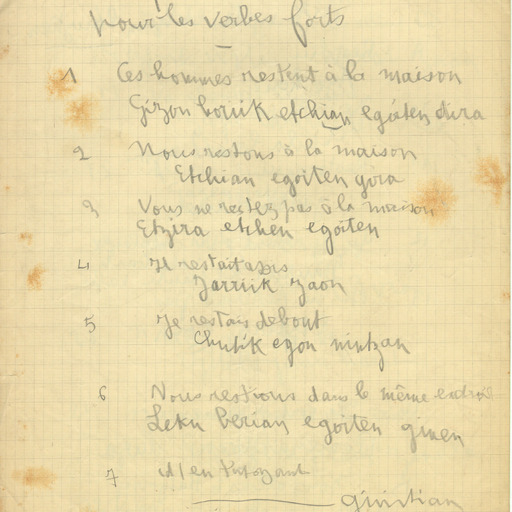 pour les verbes forts
1 Ces hommes restent à la maison
Gizon horiik etchian egoiten dira
2 Nous restons à la maison
Etchian egoiten gira
3 Vous ne restez pas à la maison
Etzira etchen egoiten
4 Il restait assis
Jarriik zaon
5 Je restais debout
Chutik egon nintzan
6 Nous restions dans le même endroit
Leku berian egoiten ginen
7 id/ en tutoyant